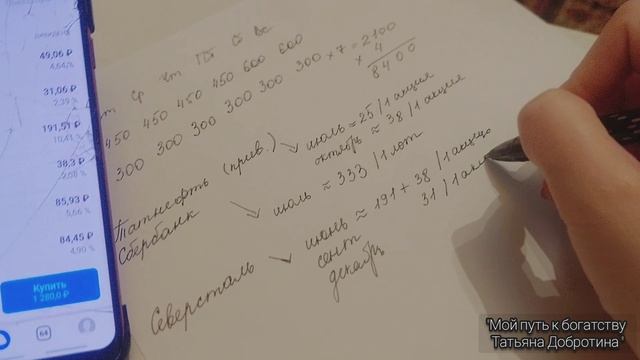 49,06 ₽
4,64%
31,06 ₽
2,39 %
191,51 ₽
10,41 %
38,3 ₽
85,93 ₽
5,66 %
84,45 ₽
4,90 %
Купить
1 280,0 ₽
64
ст Ср Чт Пт Сб Вс
450 450 450 450 600 600
300 300 300 300 300 300 × 7 = 2100
× 4
8400
Татнефть (прив.) июль = 25 / 1 акция
октябрь ≈ 38 / 1 акция
Сбербанк июль ≈ 333 / 1 лот
Северсталь июнь ≈ 191 + 38 / 1 акцию
сент 31 / 1 ак
декабрь
"Мой путь к богатству
Татьяна Добротина"